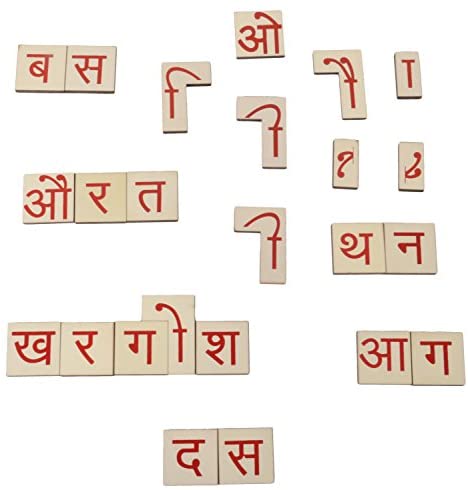 ओ
बस
ो
ौ
ा
ो
औरत
ो
थन
खरगोश
आग
दस